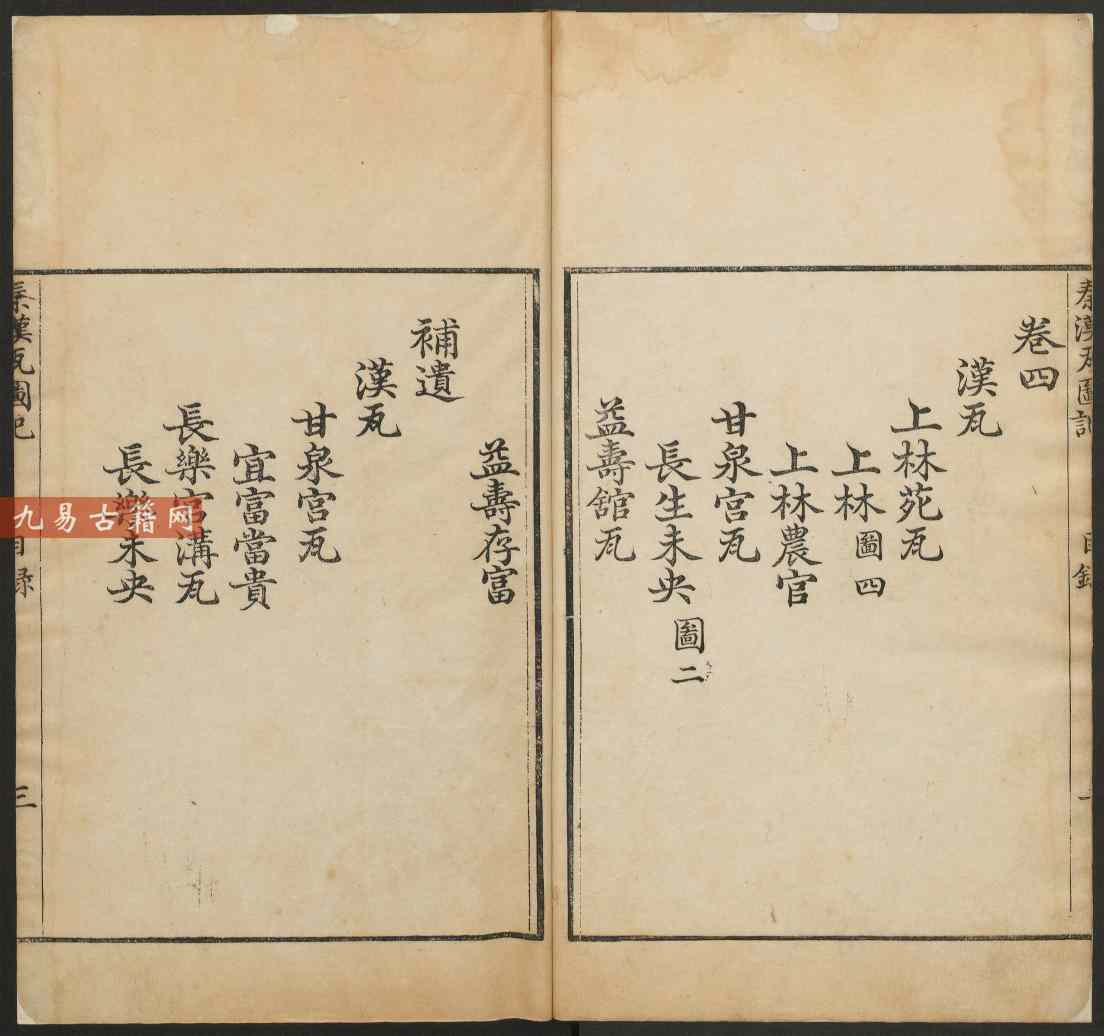 秦漢瓦圖記
目錄
卷四
漢瓦
上林苑瓦
上林 圖四
上林農官
甘泉宮瓦
長生未央 圖二
益壽館瓦
益壽存富
補遺
漢瓦
甘泉宮瓦
宜富當貴
長樂宮溝瓦
長樂未央
秦漢瓦圖記
目錄
三
九易古籍网